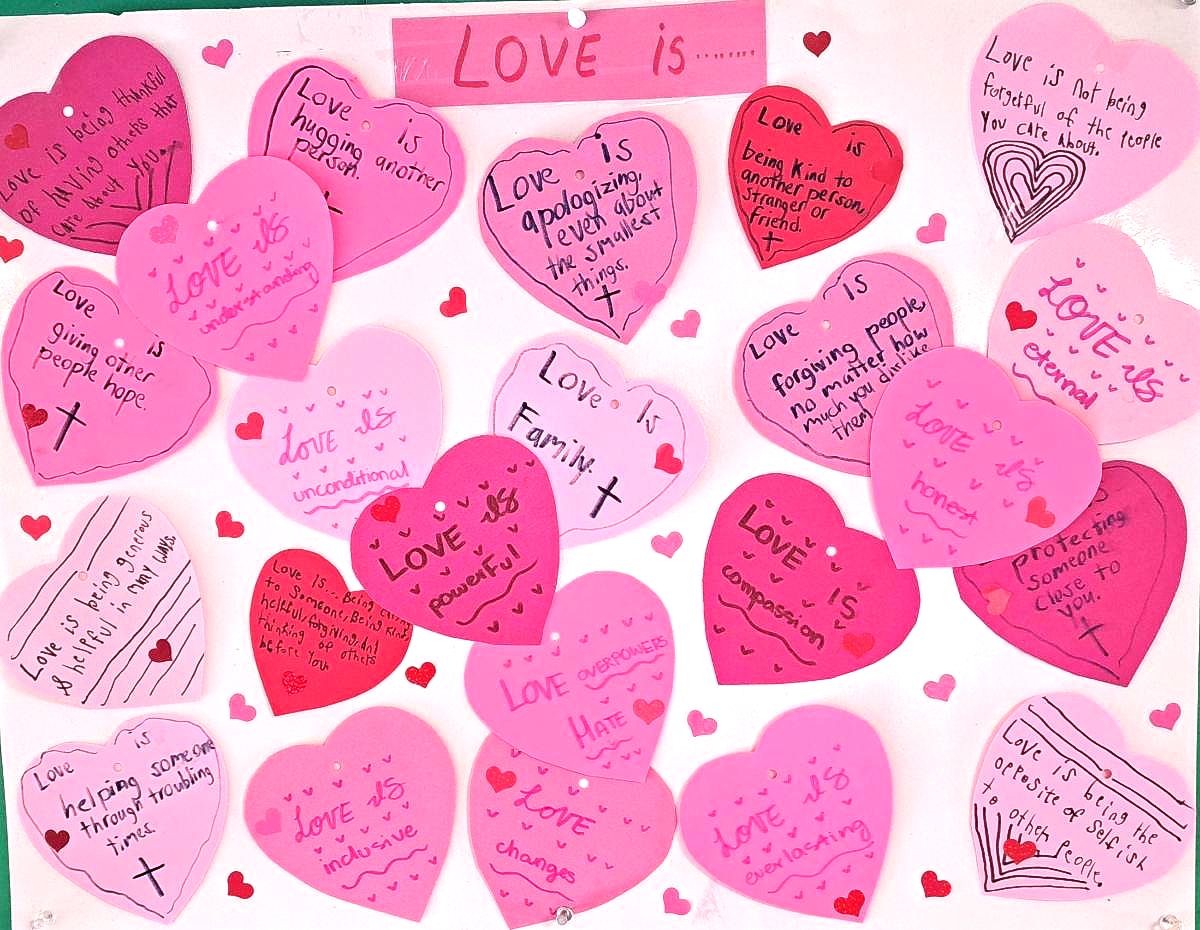 LOVE is........
Love is being thankful
of having others that
care about you.
Love is
hugging another
person.
Love is
apologizing,
even about
the smallest
things.
Love is
being kind to
another person,
stranger or
friend.
Love is not being
forgetful of the people
you care about.
LOVE Is
understanding
Love is
giving other
people hope.
Love is
forgiving people,
no matter how
much you dislike
them!
LOVE Is
eternal
LOVE Is
unconditional
Love Is
Family.
LOVE Is
honest
LOVE Is
powerful
LOVE IS
compassion
protecting
someone
close to
you.
Love is being generous
& helpful in many ways.
Love is... Being
to Someone, Being Kind
helpful, forgiving, and
thinking of others
before you
LOVE OVERPOWERS
HATE
Love is
helping someone
through troubling
times.
LOVE Is
inclusive
LOVE
changes
LOVE Is
everlasting
Love is being the
opposite of selfish
to other people.